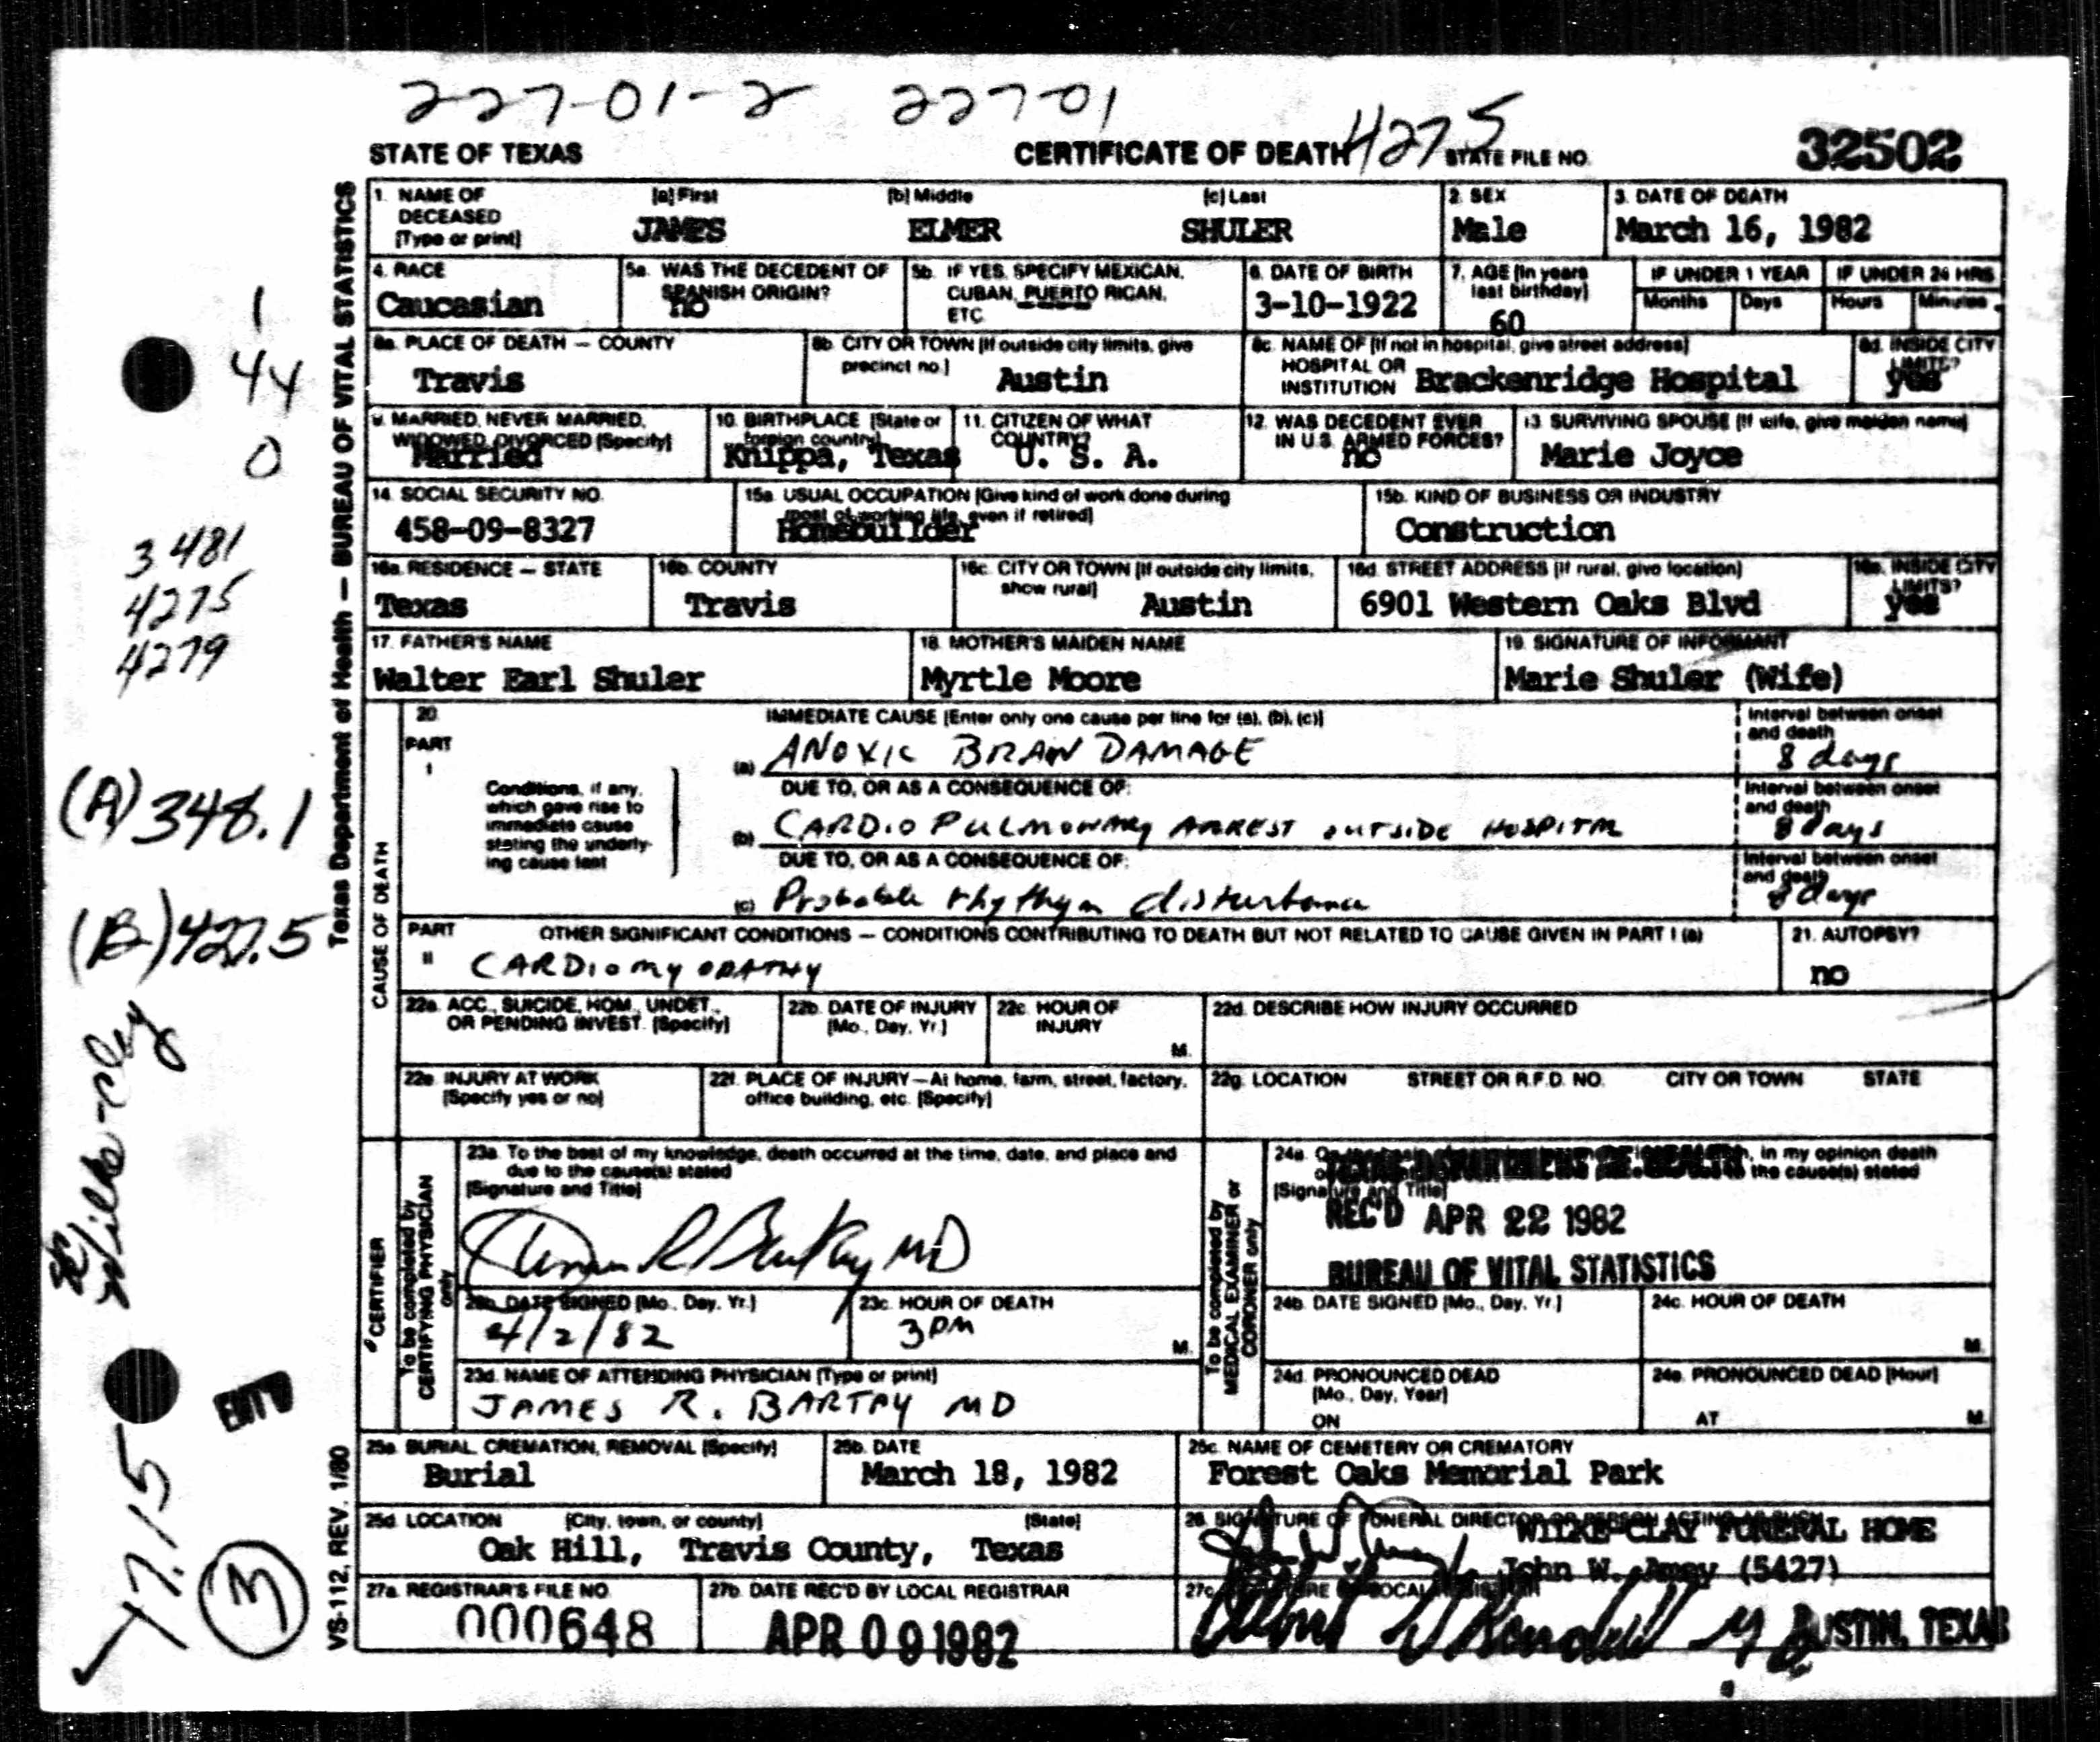 227-01-2 22701
STATE OF TEXAS CERTIFICATE OF DEATH 4275 STATE FILE NO. 32502
1. NAME OF DECEASED [Type or print] [a] First [b] Middle [c] Last 2. SEX 3. DATE OF DEATH
JAMES ELMER SHULER Male March 16, 1982
4. RACE 5a. WAS THE DECEDENT OF SPANISH ORIGIN? 5b. IF YES, SPECIFY MEXICAN, CUBAN, PUERTO RICAN, ETC. 6. DATE OF BIRTH 7. AGE [In years last birthday] IF UNDER 1 YEAR IF UNDER 24 HRS
Months Days Hours Minutes
Caucasian no 3-10-1922 60
8a. PLACE OF DEATH — COUNTY 8b. CITY OR TOWN [If outside city limits, give precinct no.] 8c. NAME OF [If not in hospital, give street address] HOSPITAL OR INSTITUTION 8d. INSIDE CITY LIMITS?
Travis Austin Brackenridge Hospital yes
9. MARRIED, NEVER MARRIED, WIDOWED, DIVORCED [Specify] 10. BIRTHPLACE [State or foreign country] 11. CITIZEN OF WHAT COUNTRY? 12. WAS DECEDENT EVER IN U.S. ARMED FORCES? 13. SURVIVING SPOUSE [If wife, give maiden name]
Married Knippa, Texas U. S. A. no Marie Joyce
14. SOCIAL SECURITY NO. 15a. USUAL OCCUPATION [Give kind of work done during most of working life, even if retired] 15b. KIND OF BUSINESS OR INDUSTRY
458-09-8327 Homebuilder Construction
16a. RESIDENCE — STATE 16b. COUNTY 16c. CITY OR TOWN [If outside city limits, show rural] 16d. STREET ADDRESS [If rural, give location] 16e. INSIDE CITY LIMITS?
Texas Travis Austin 6901 Western Oaks Blvd yes
17. FATHER'S NAME 18. MOTHER'S MAIDEN NAME 19. SIGNATURE OF INFORMANT
Walter Earl Shuler Myrtle Moore Marie Shuler (Wife)
CAUSE OF DEATH
20. PART I IMMEDIATE CAUSE [Enter only one cause per line for (a), (b), (c)] Interval between onset and death
Conditions, if any, which gave rise to immediate cause stating the underlying cause last
(a) ANOXIC BRAIN DAMAGE 8 days
DUE TO, OR AS A CONSEQUENCE OF: Interval between onset and death
(b) CARDIO PULMONARY ARREST OUTSIDE HOSPITAL 8 days
DUE TO, OR AS A CONSEQUENCE OF: Interval between onset and death
(c) Probable rhythym disturbance 8 days
PART II OTHER SIGNIFICANT CONDITIONS — CONDITIONS CONTRIBUTING TO DEATH BUT NOT RELATED TO CAUSE GIVEN IN PART I (a) 21. AUTOPSY?
CARDIOMYOPATHY no
22a. ACC., SUICIDE, HOM., UNDET., OR PENDING INVEST. [Specify] 22b. DATE OF INJURY [Mo., Day, Yr.] 22c. HOUR OF INJURY M. 22d. DESCRIBE HOW INJURY OCCURRED
22e. INJURY AT WORK [Specify yes or no] 22f. PLACE OF INJURY — At home, farm, street, factory, office building, etc. [Specify] 22g. LOCATION STREET OR R.F.D. NO. CITY OR TOWN STATE
CERTIFIER
To be completed by CERTIFYING PHYSICIAN only
23a. To the best of my knowledge, death occurred at the time, date, and place and due to the cause(s) stated
[Signature and Title]
James R Bartay MD
23b. DATE SIGNED [Mo., Day, Yr.] 23c. HOUR OF DEATH
4/2/82 3 PM M.
23d. NAME OF ATTENDING PHYSICIAN [Type or print]
JAMES R. BARTAY MD
To be completed by MEDICAL EXAMINER or CORONER only
24a. in my opinion death the cause(s) stated
[Signature and Title]
REC'D APR 22 1982
BUREAU OF VITAL STATISTICS
24b. DATE SIGNED [Mo., Day, Yr.] 24c. HOUR OF DEATH M.
24d. PRONOUNCED DEAD [Mo., Day, Year] ON 24e. PRONOUNCED DEAD [Hour] AT M.
25a. BURIAL, CREMATION, REMOVAL [Specify] 25b. DATE 25c. NAME OF CEMETERY OR CREMATORY
Burial March 18, 1982 Forest Oaks Memorial Park
25d. LOCATION [City, town, or county] [State] 26. SIGNATURE OF FUNERAL DIRECTOR OR PERSON ACTING AS SUCH
Oak Hill, Travis County, Texas WILKE-CLAY FUNERAL HOME
John W. Amey (5427)
27a. REGISTRAR'S FILE NO. 27b. DATE REC'D BY LOCAL REGISTRAR 27c. SIGNATURE OF LOCAL REGISTRAR
000648 APR 09 1982 AUSTIN, TEXAS
Texas Department of Health — BUREAU OF VITAL STATISTICS
VS-112, REV. 1/80
1
44
0
3481
4275
4279
(A) 348.1
(B) 427.5
ENT'D
47.15
3